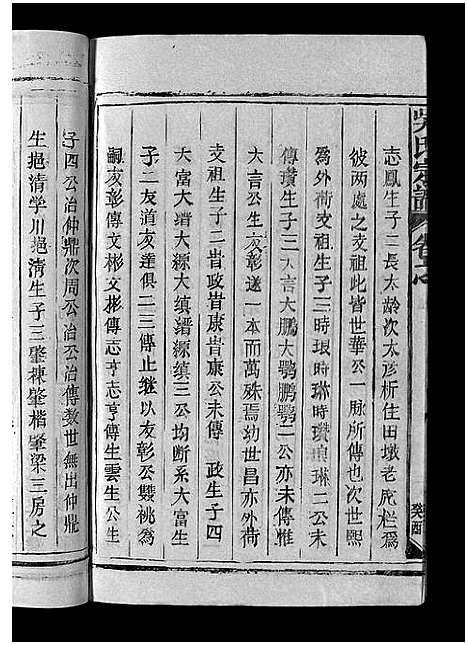 吳氏宗譜 卷之
癸酉
志鳳生子二長太齡次太彦析住田墩老屋栏爲
彼兩處之支祖此皆世華公一脉所傳也次世熙
爲外荷支祖生子三時琅時琳時瓚琅琳二公未
傳瓚生子三大吉大鵬大鶚鵬鶚二公亦未傳惟
大吉公生友彰遂一本而萬殊焉幼世昌亦外荷
支祖生子二旹政旹康旹康公未傳 政生子四
大富大瑨大源大缜瑨源缜三公均断系大富生
子二友道友達俱二三傳止继以友彰公雙祧爲
嗣友彰傳文彬文彬傳志亨志亨傳生雲生公生
子四公治仲鼎次周公治公治傳数世無出仲鼎
生挹清学川挹清生子三肇棟肇楷肇梁三房之